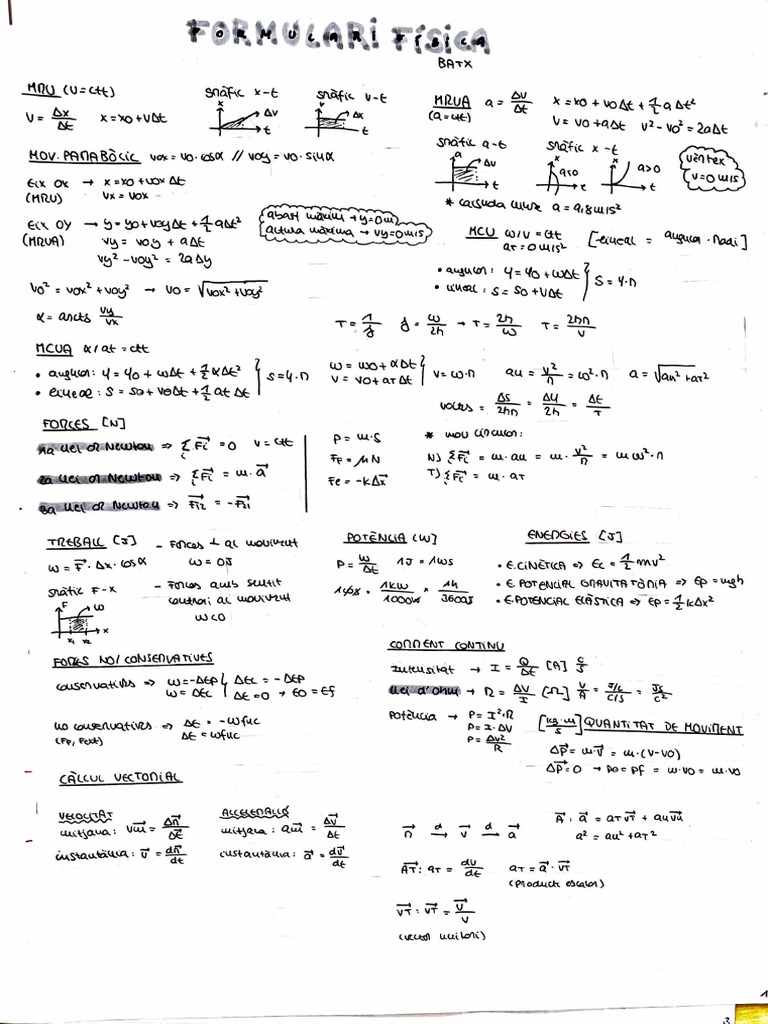 FORMULARI FÍSICA
BATX
MRU (v=ctt)
v = Δx/Δt   x = x0 + vΔt
gràfic x-t
x Δv t
gràfic v-t
v Δx t
MRUA (a=ctt)
a = Δv/Δt   x = x0 + v0Δt + 1/2 aΔt²
v = v0 + aΔt   v² - v0² = 2aΔt
gràfic a-t
a Δv t
gràfic x-t
x a<0 t
x a>0 t
vèrtex
v = 0 m/s
* caiguda lliure a = 9,8 m/s²
MOV. PARABÒLIC v0x = v0·cosα // v0y = v0·sinα
Eix OX → x = x0 + v0xΔt
(MRU) vx = v0x
Eix OY → y = y0 + v0yΔt + 1/2 aΔt²
(MRUA) vy = v0y + aΔt
vy² - v0y² = 2aΔy
abast màxim → y = 0 m
altura màxima → vy = 0 m/s
v0² = v0x² + v0y² → v0 = √v0x² + v0y²
α = arctg vy/vx
MCU ω/v = ctt
aT = 0 m/s²
[lineal = angular · radi]
• angular: φ = φ0 + ωΔt
• lineal: s = s0 + vΔt
s = φ·r
T = 1/f   f = ω/2π → T = 2π/ω   T = 2πr/v
MCUA α/at = ctt
• angular: φ = φ0 + ωΔt + 1/2 αΔt²
• lineal: s = s0 + v0Δt + 1/2 atΔt
s = φ·r
ω = ω0 + αΔt
v = v0 + aTΔt
v = ω·r
an = v²/r = ω²·r   a = √an² + aT²
voltes = Δs/2πr = Δφ/2π = Δt/T
FORCES [N]
1a llei de Newton => Σ Fi = 0   v = ctt
2a llei de Newton => Σ Fi = m·a
3a llei de Newton => F12 = -F21
P = m·g
FF = μN
Fe = -kΔx
* mov circular:
N) Σ Fi = m·an = m·v²/r = mω²·r
T) Σ Fi = m·aT
TREBALL [J]
W = F·Δx·cosα
gràfic F-x
F W x1 x2 x
- Forces ⊥ al moviment
W = 0J
- Forces amb sentit
contrari al moviment
W<0
POTÈNCIA [W]
P = W/Δt   1J = 1Ws
1kW/1000W · 1h/3600s
ENERGIES [J]
• E.CINÈTICA => Ec = 1/2 mv²
• E.POTENCIAL GRAVITATÒRIA => Ep = mgh
• E.POTENCIAL ELÀSTICA => Ep = 1/2 kΔx²
FORCES NO/CONSERVATIVES
conservatives => W = -ΔEp
W = ΔEc
ΔEc = -ΔEp
ΔE = 0 → E0 = Ef
no conservatives => ΔE = -Wfnc
(FF, Fext) ΔE = Wfnc
CORRENT CONTINU
Intensitat → I = Q/Δt [A] C/s
Llei d'Ohm → R = ΔV/I [Ω] V/A = J/C / C/s = Js/C²
Potència → P = I²·R
P = I·ΔV
P = ΔV²/R
[kg·m/s] QUANTITAT DE MOVIMENT
Δp = m·v = m·(v-v0)
Δp = 0 → p0 = pf = m·v0 = m·v0
CÀLCUL VECTORIAL
VELOCITAT
mitjana: vm = Δr/Δt
instantània: v = dr/dt
ACCELERACIÓ
mitjana: am = Δv/Δt
instantània: a = dv/dt
r →d v →d a
A: a = aT vT + an un
a² = an² + aT²
AT: aT = dv/dt   aT = a·vT
(producte escalar)
vT: vT = v/v
(vector unitari)